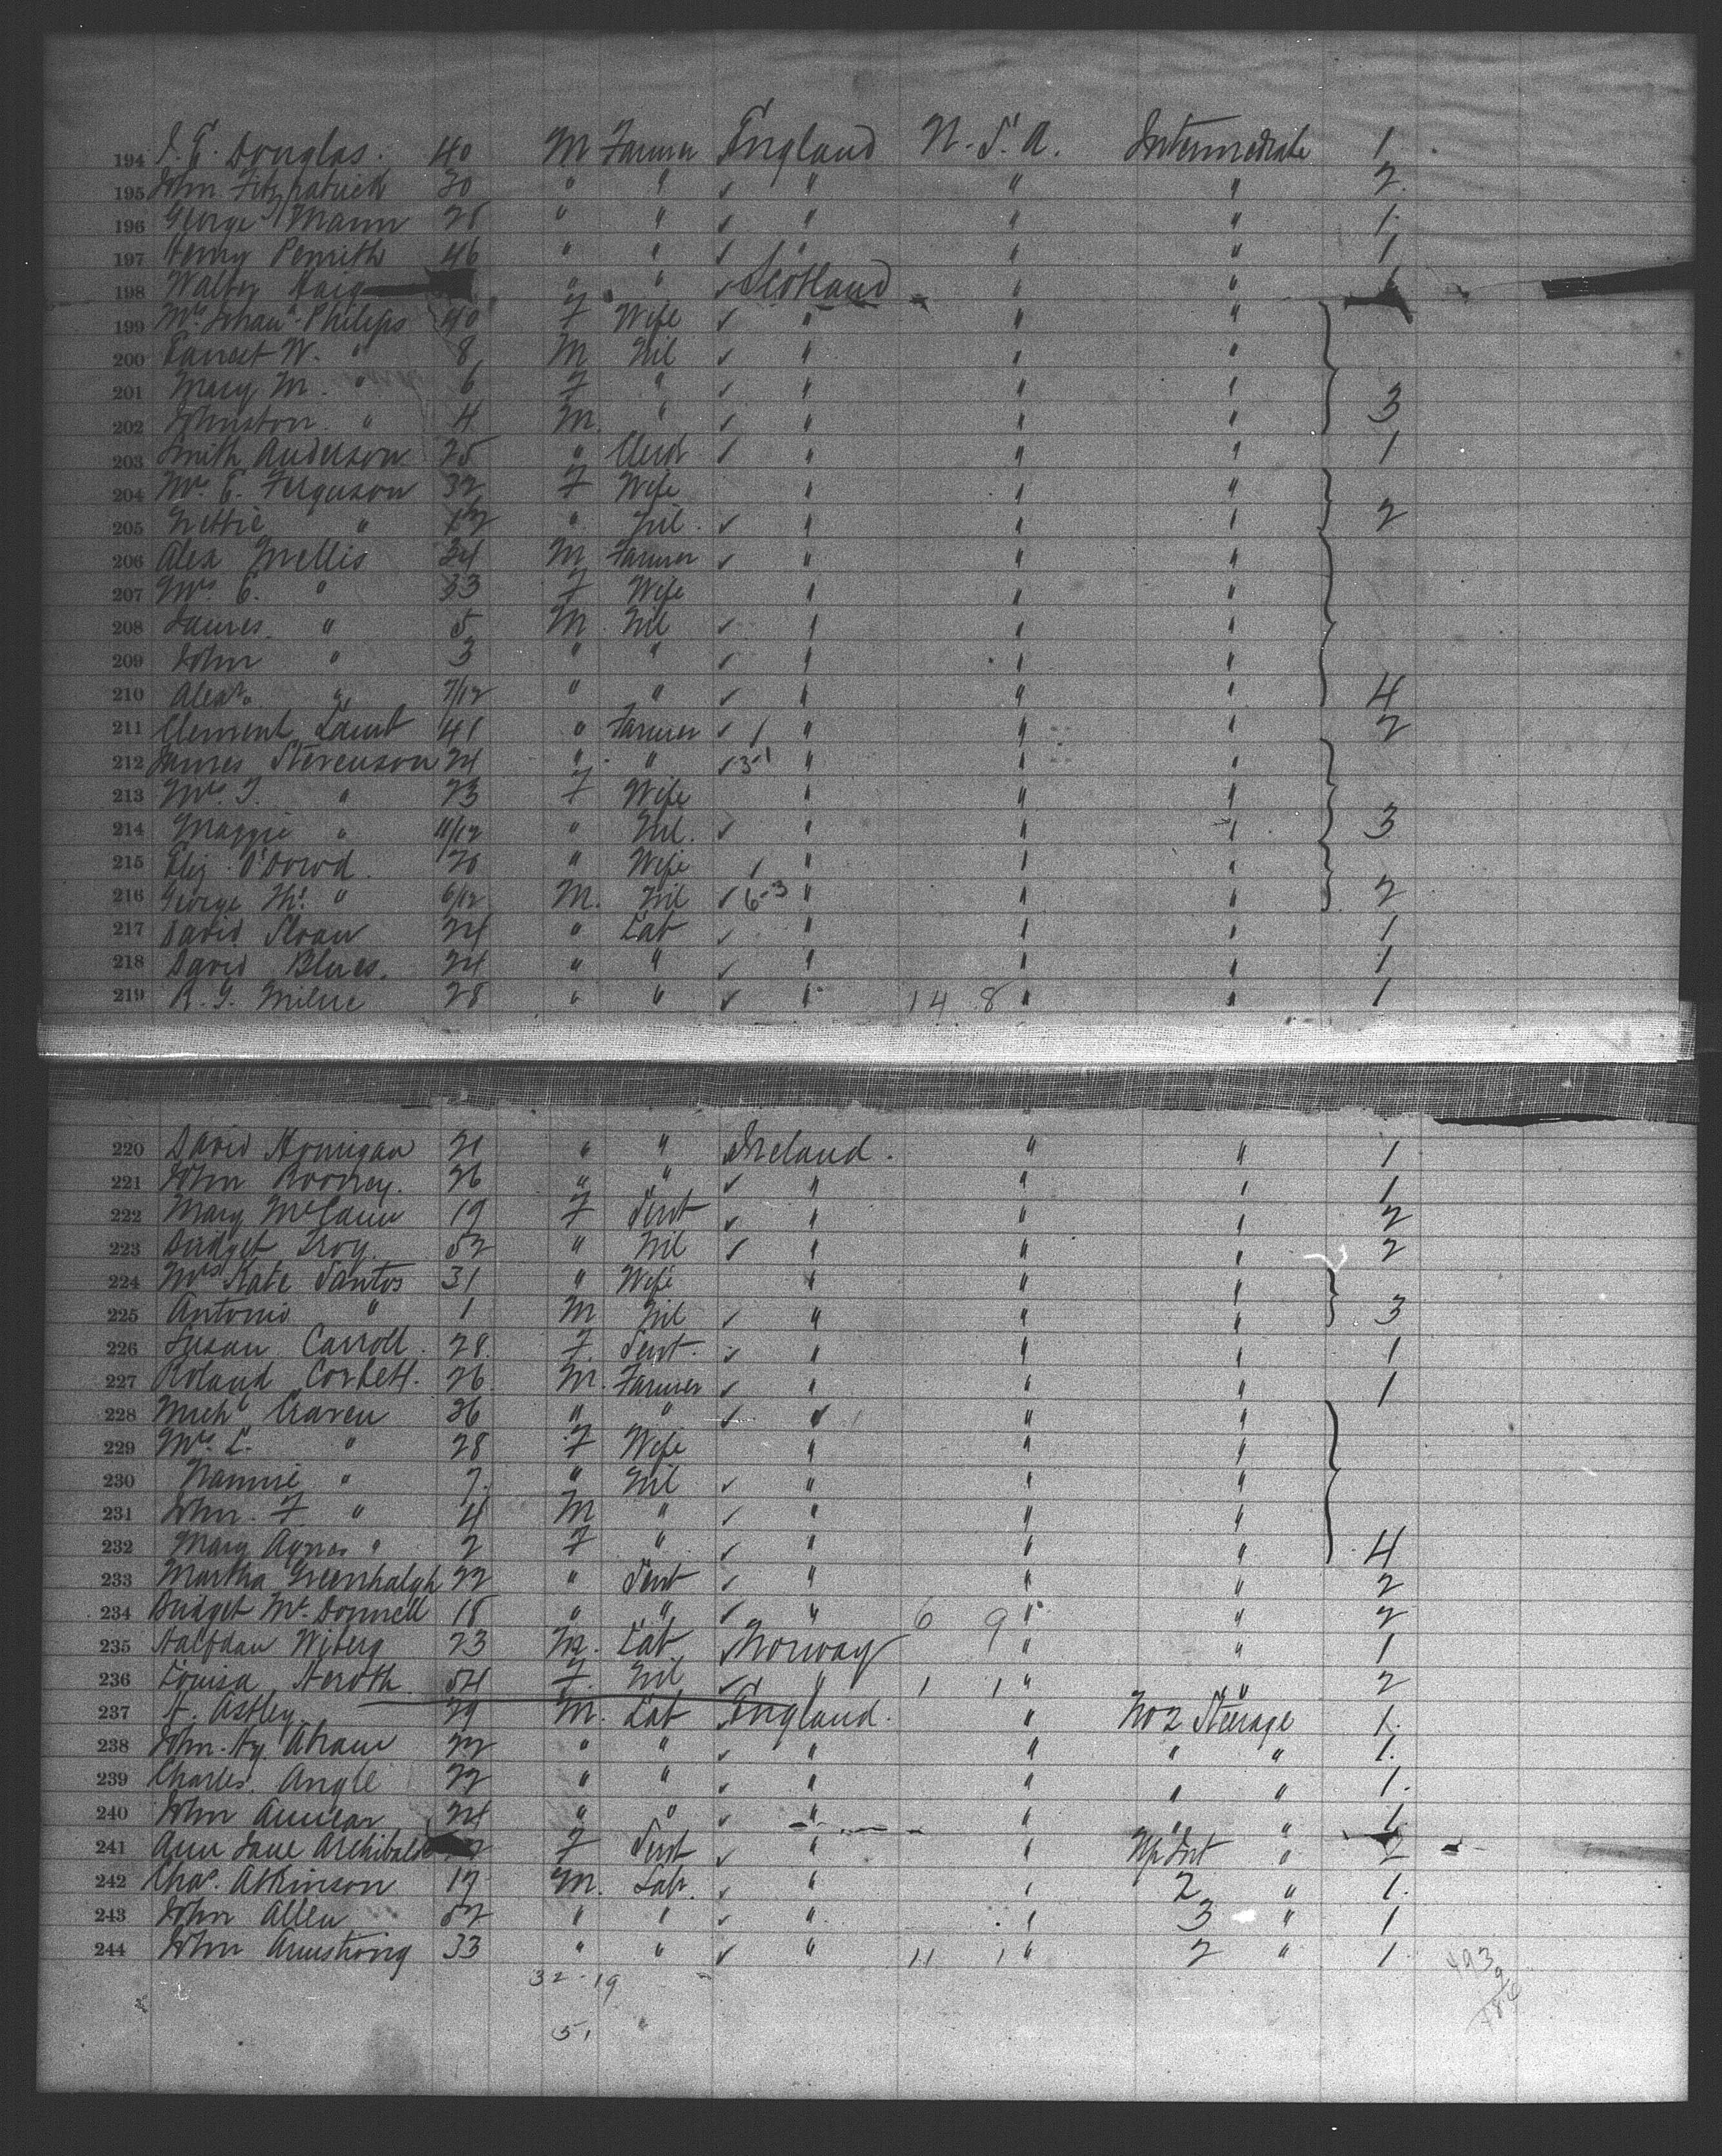 194 J. E. Douglas. 40 M Farmer England U. S. A. Intermediate 1.
195 John Fitzpatrick 30 " " ✓ " " " 2.
196 George Mann 28 " " ✓ " " " 1.
197 Henry Penrith 46 " " ✓ " " " 1
198 Walter Haig " " ✓ Scotland " "
199 Mrs Johan Philips 40 F Wife ✓ " " "
200 Ernest W. " 8 M Nil ✓ " " "
201 Mary M. " 6 F " ✓ " " "
202 Johnston " 4 M. " ✓ " " " 3
203 Smith Anderson 25 " Clerk ✓ " " " 1
204 Mrs E. Ferguson 32 F Wife " " "
205 Nettie " 12 " Nil. ✓ " " " 2
206 Alex Mellis 34 M Farmer ✓ " " "
207 Mrs E. " 33 F Wife " " "
208 James " 5 M. Nil ✓ " " "
209 John " 3 " " ✓ " " "
210 Alexr. " 7/12 " " ✓ " " " 4
211 Clement Lamb 41 " Farmer ✓ 1 " " " 2
212 James Stevenson 24 " " ✓ 3-1 " " "
213 Mrs J. " 23 F Wife " " "
214 Maggie " 11/12 " Nil. ✓ " " " 3
215 Eliz. O'Dowd. 20 " Wife 1 " " "
216 George Th. " 6/12 M. Nil ✓ 6-3 " " " 2
217 David Sloan 24 " Lab ✓ " " " 1
218 David Blues. 24 " " ✓ " " " 1
219 R. G. Milne 28 " " ✓ " 14 8 " " 1
220 David Hannigan 21 " " Ireland. " " 1
221 John Rooney. 26 " " ✓ " " " 1
222 Mary McCann 19 F Servt ✓ " " " 2
223 Bridget Troy. 52 " Nil ✓ " " " 2
224 Mrs Kate Santos 31 " Wife " " "
225 Antonio " 1 M Nil ✓ " " " 3
226 Susan Carroll. 28. F. Servt. ✓ " " " 1
227 Roland Corbett. 26 M. Farmer ✓ " " " 1
228 Michl Craven 36 " " ✓ " 1 " "
229 Mrs L. " 28 F Wife " " "
230 Nannie " 7. " Nil ✓ " " "
231 John. F " 4 M " ✓ " " "
232 Mary Agnes " 2 F " ✓ " " " 4
233 Martha Greenhalgh 22 " Servt ✓ " " " 2
234 Bridget McDonnell 18 " " ✓ " 6 9 " " 2
235 Halfdan Wiberg 23 M. Lab Norway " " 1
236 Louisa Heroth 54 F. Nil ✓ " 1 1 " " 2
237 H. Astley 29 M. Lab England. " No 2 Steerage 1.
238 John Hy. Abram 22 " " ✓ " " " " 1.
239 Charles. Angle 22 " " ✓ " " " " 1.
240 John Annear 24 " " ✓ " " " " 1
241 Ann Jane Archibald F Servt ✓ " " " 2
242 Chas. Atkinson 17 M. Lab. ✓ " " 2 " 1.
243 John Allen 52 " " ✓ " " 3 " 1
244 John Armstrong 33 " " ✓ " 11 1 " 2 " 1.
32-19
51